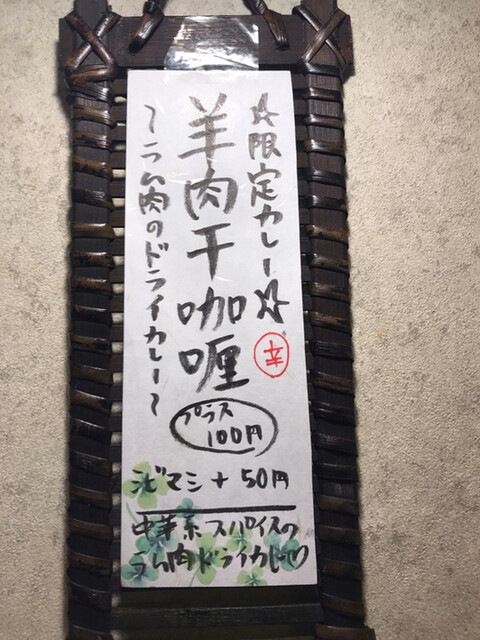 ☆限定カレー☆
辛
羊肉干咖喱
〜ラム肉のドライカレー〜
プラス
100円
シビマシ + 50円
中華系スパイスの
ラム肉ドライカレー♡